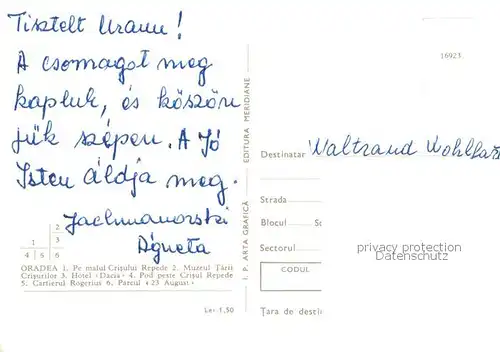 Tisztelt Uram!
A csomagot meg
kaptuk, és köszön
jük szépen. A Jó
Isten áldja meg.
Jachmanorski
Ágneta
16923
EDITURA MERIDIANE
I. P. ARTA GRAFICĂ
Destinatar Waltraud Wohlfa
Strada
Blocul Sc
Sectorul
CODUL
Țara de desti
privacy protection
Datenschutz
2
1 3
4 5 6
ORADEA 1. Pe malul Crișului Repede 2. Muzeul Țării
Crișurilor 3. Hotel «Dacia» 4. Pod peste Crișul Repede
5. Cartierul Rogerius 6. Parcul «23 August»
Lei 1,50